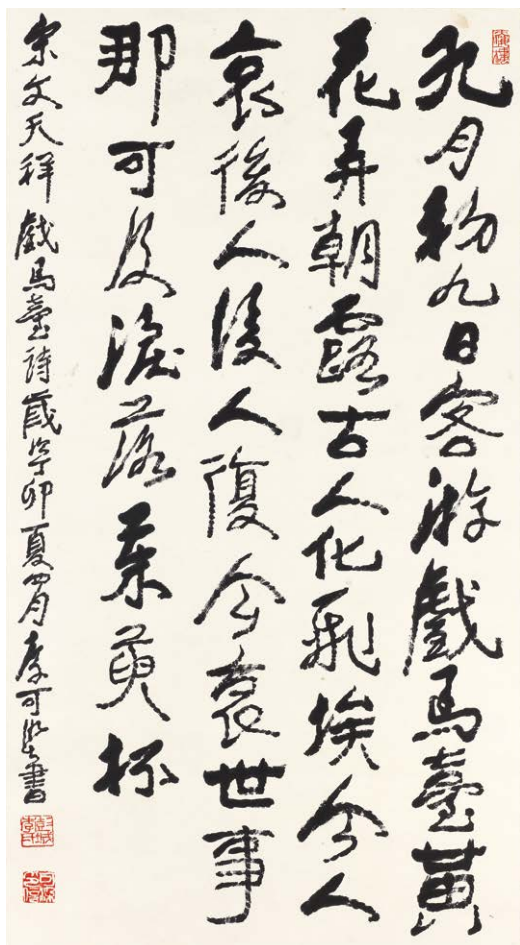 九月初九日客游戲馬臺黃
花弄朝露古人化飛埃今人
哀後人後人復今哀世事
那可及淚落茱萸杯
宋文天祥戲馬臺詩歲次丁卯夏四月李可染書